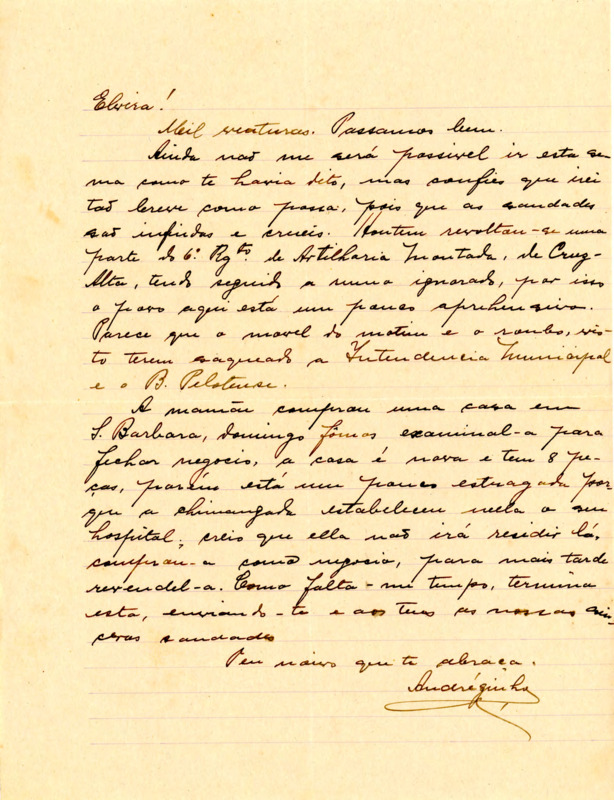 Elvira!
Mil venturas. Passamos bem.
Ainda não me será possivel ir esta se-
ma como te havia dito, mas confies que irei
tão breve como possa, pois que as saudades
são infindas e crueis. Hontem revoltou-se uma
parte do 6º Rgto de Artilharia Montada, de Cruz-
Alta, tendo seguido a rumo ignorado, por isso
o povo aqui está um pouco aprehensivo.
Parece que o movel do motim é o roubo, vis-
to terem saqueado a Intendencia Municipal
e o B. Pelotense.
A mamãe comprou uma casa em
S. Barbara, domingo fômos examinal-a para
fechar negocio, a casa é nova e tem 8 pe-
ças, porém está um pouco estragada por
que a chimangada estabeleceu nella o seu
hospital; creio que ella não irá residir lá,
comprou-a como negocio, para mais tarde
revendel-a. Como falta-me tempo, termino
esta, enviando-te e aos teus as nossas sin-
ceras saudades
Teu noivo que te abraça.
Andréginho